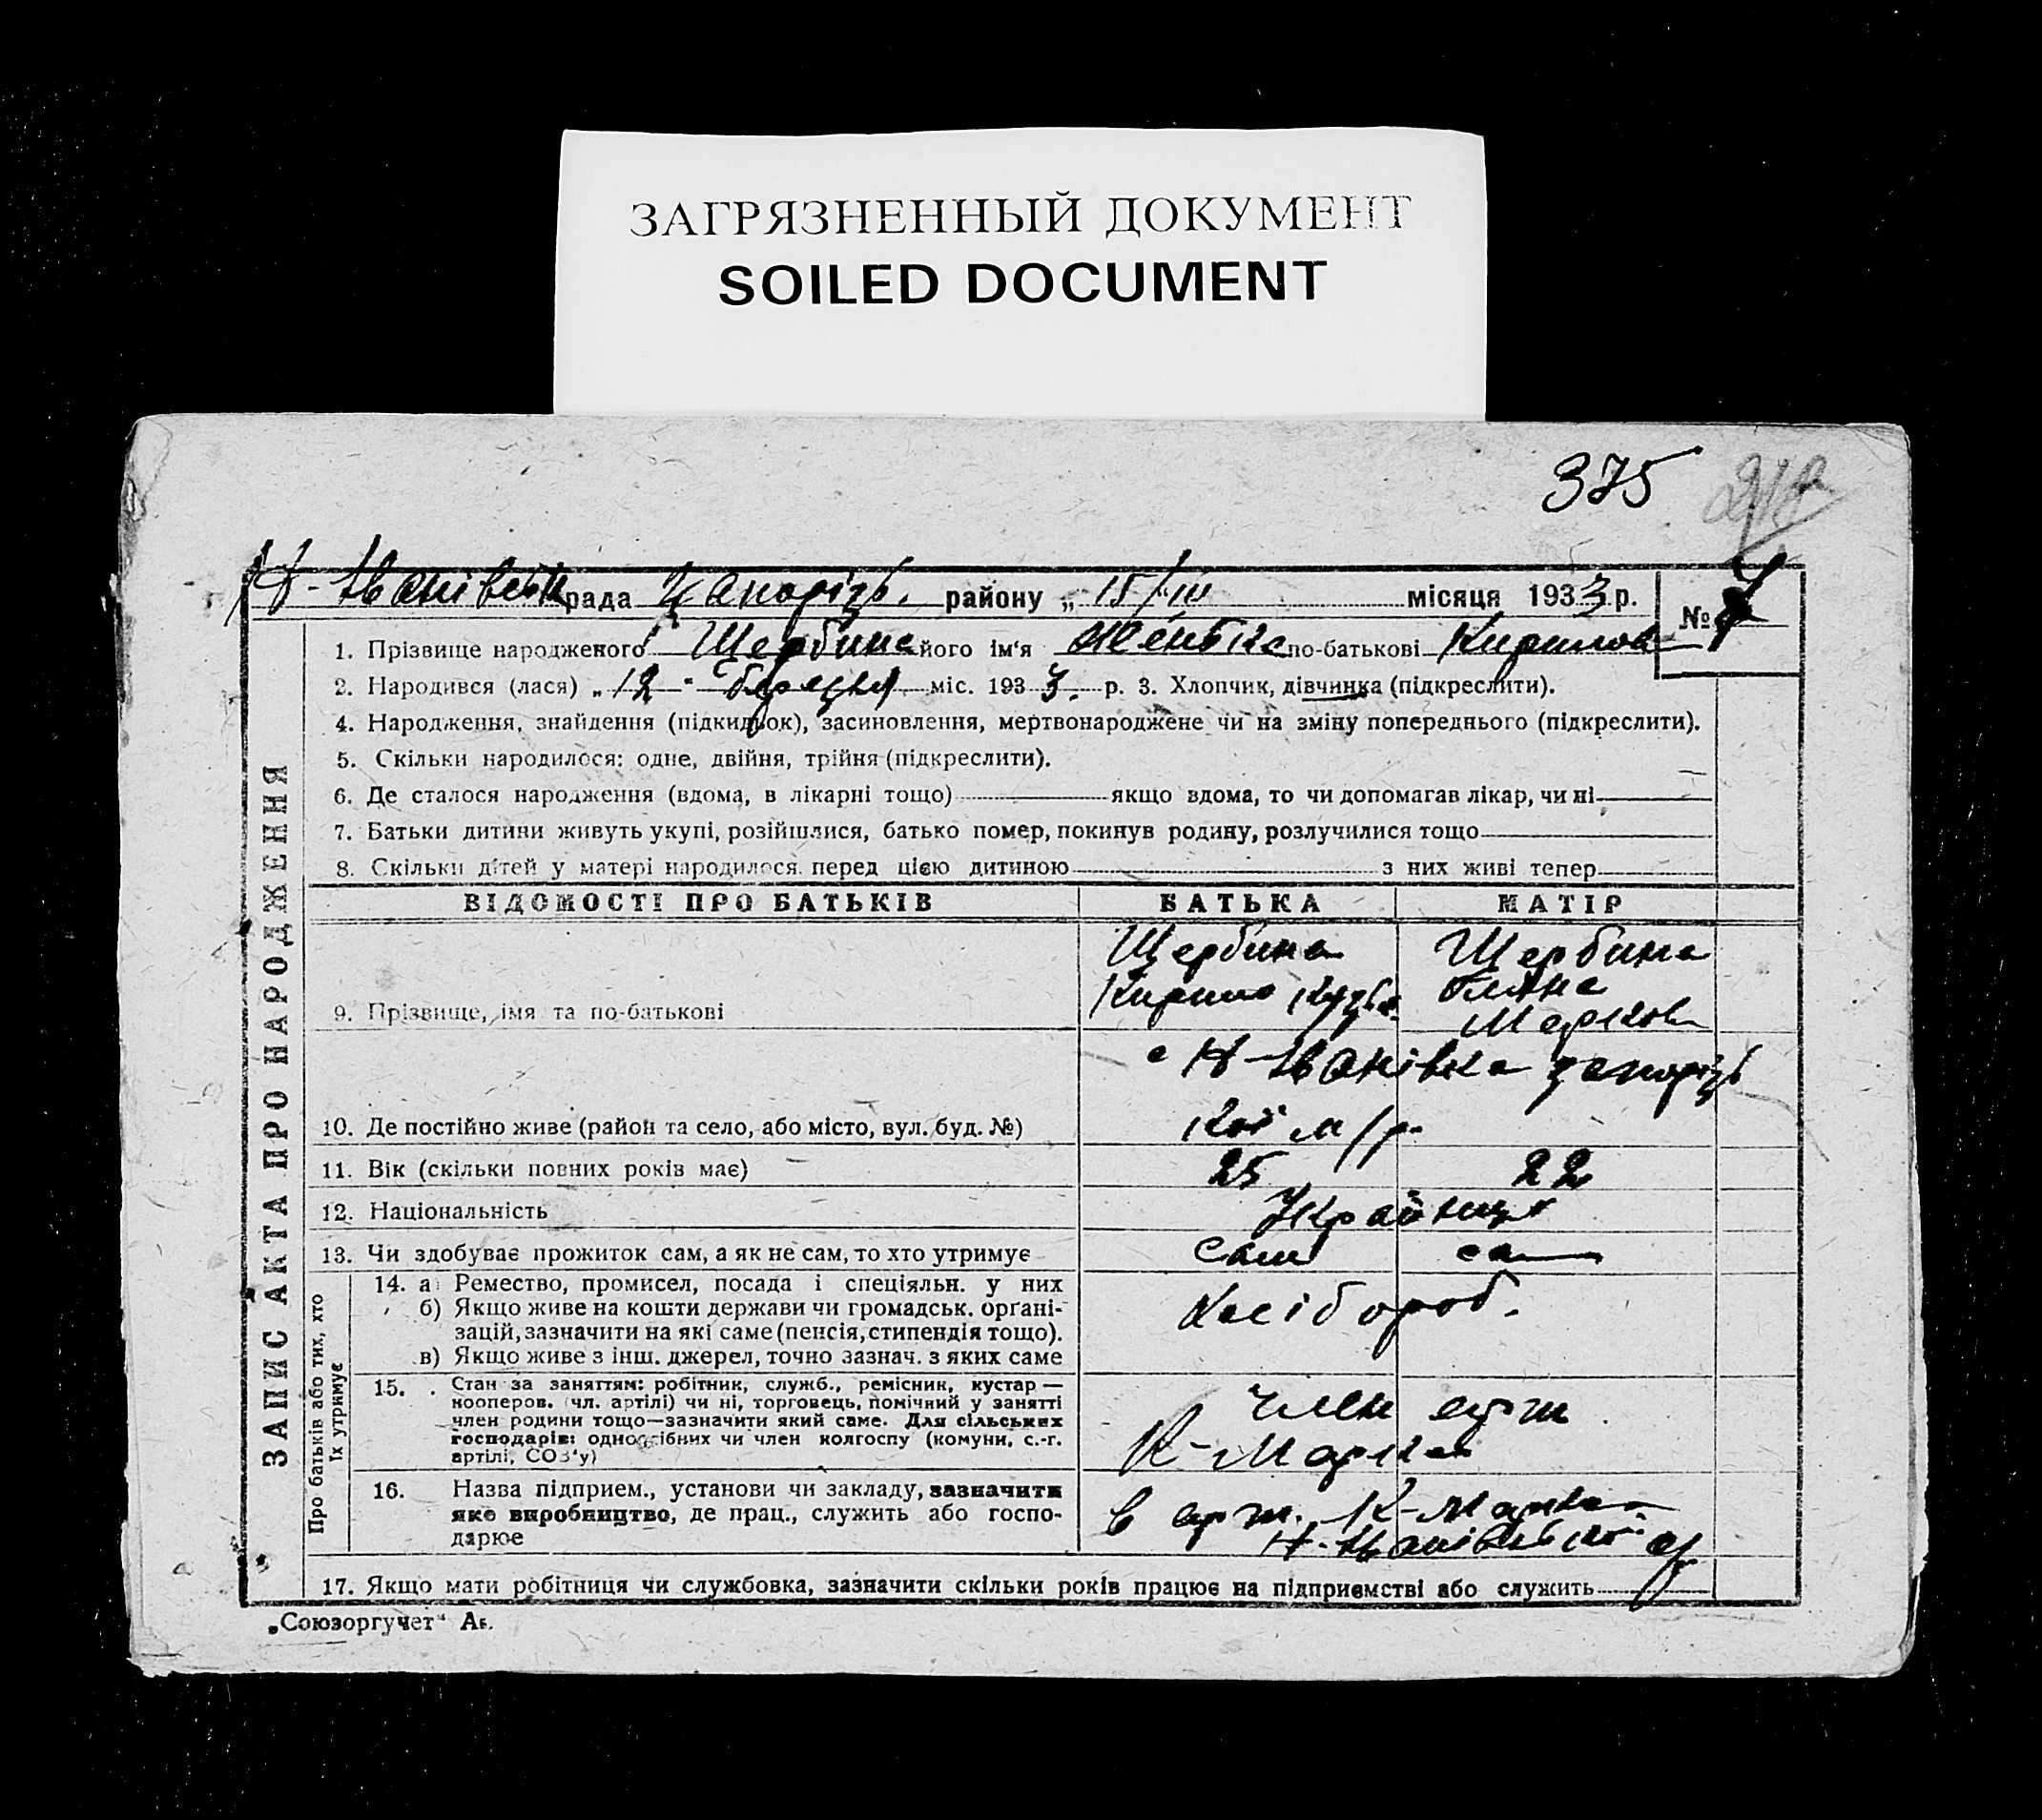 ЗАГРЯЗНЕННЫЙ ДОКУМЕНТ
SOILED DOCUMENT
375
Н-Іванівськ рада Запорізь. району „ 15/III місяця 1933 р. №
1. Прізвище народженого Щербина його ім'я по-батькові Кирилов
2. Народився (лася) „ 12 " березня міс. 1933. р. 3. Хлопчик, дівчинка (підкреслити).
4. Народження, знайдення (підкидьок), засиновлення, мертвонароджене чи на зміну попереднього (підкреслити).
5. Скільки народилося: одне, двійня, трійня (підкреслити).
6. Де сталося народження (вдома, в лікарні тощо) якщо вдома, то чи допомагав лікар, чи ні
7. Батьки дитини живуть укупі, розійшлися, батько помер, покинув родину, розлучилися тощо
8. Скільки дітей у матері народилося перед цією дитиною з них живі тепер
ВІДОМОСТІ ПРО БАТЬКІВ БАТЬКА МАТІР
Щербина Щербина
Кирило Кузьм.
Марков
9. Прізвище, імя та по-батькові
с Н-Іванівка Запорізь
кої м/р.
10. Де постійно живе (район та село, або місто, вул. буд. №)
11. Вік (скільки повних років має) 25 22
12. Національність Українці
13. Чи здобуває прожиток сам, а як не сам, то хто утримує сам сам
14. а) Ремество, промисел, посада і спеціяльн. у них
б) Якщо живе на кошти держави чи громадськ. орґані-
зацій, зазначити на які саме (пенсія, стипендія тощо).
в) Якщо живе з інш. джерел, точно зазнач. з яких саме
Хлібороб.
15. Стан за заняттям: робітник, служб., ремісник, кустар —
кооперов. (чл. артілі) чи ні, торговець, помічний у занятті
член родини тощо—зазначити який саме. Для сільських
господарів: одноосібних чи член колгоспу (комуни, с.-г.
артілі, СОЗ'у)
Член арт.
К-Маркса
16. Назва підприєм., установи чи закладу, зазначити
яке виробництво, де прац., служить або госпо-
дарює
в арт. К-Маркса
Н-Іванівської с/р
17. Якщо мати робітниця чи службовка, зазначити скільки років працює на підприємстві або служить
ЗАПИС АКТА ПРО НАРОДЖЕННЯ
Про батьків або тих, хто
їх утримує
„Союзоргучет"